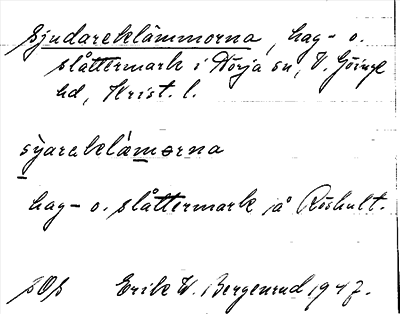 Sjudareklämmorna, hag- o.
slåttermark i Norja sn, V. Göinge
hd, Krist. l.
syareklämorna
hag- o. slåttermark på Röshult.
SOp Erik W. Bergenrud 1947.